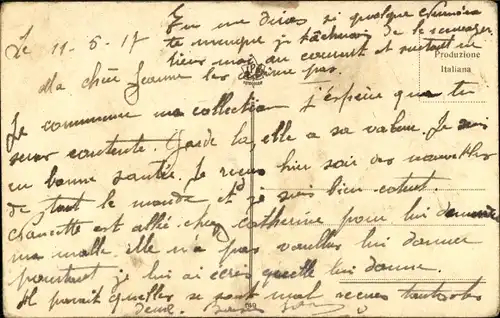 Tu me diras si quelque numéro
Le 11-5-17 te manque je tâcherai de le
tiens moi au courant et surtout ne
Ma chère Jeanne les abîme pas.
Produzione
Italiana
Je commence ma collection j'espère que tu
seras contente. Garde la elle a sa valeur. Je suis
en bonne santé. Je reçus hier soir des nouvelles
de tout le monde et je suis bien content.
est allée chez Catherine pour lui demander
ma malle. Elle n'a pas voullu lui donner
pourtant je lui ai écris quelle lui donne.
Il parait quelles se sont mal recues toutes les
deux.